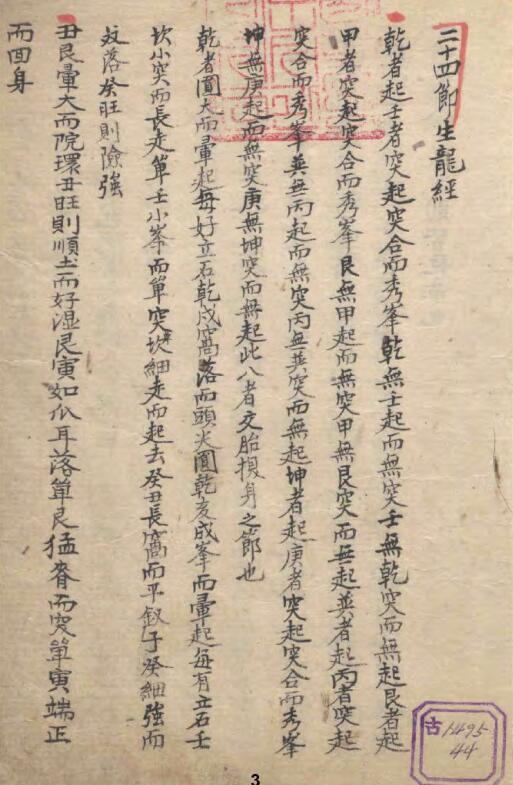 二十四節生龍經
乾者起壬者突起突合而秀峯乾無壬起而無突壬無乾突而無起艮者起
甲者突起突合而秀峯艮無甲起而無突甲無艮突而無起巽者起丙者突起
突合而秀峯巽無丙起而無突丙無巽突而無起坤者起庚者突起突合而秀峯
坤無庚起而無突庚無坤突而無起此八者交胎換身之節也
乾者圓大而暈起每好立石乾戌窩落而頭尖圓乾亥成峯而暈起每有立石壬
坎小突而長走單壬小峯而單突坎細走而起去癸丑長窩而平釵子癸細強而
落癸旺則險強
丑艮暈大而院環丑旺則順土而好湿艮寅如瓜耳落單艮猛脊而突單寅端正
而回身
古1495
44
3